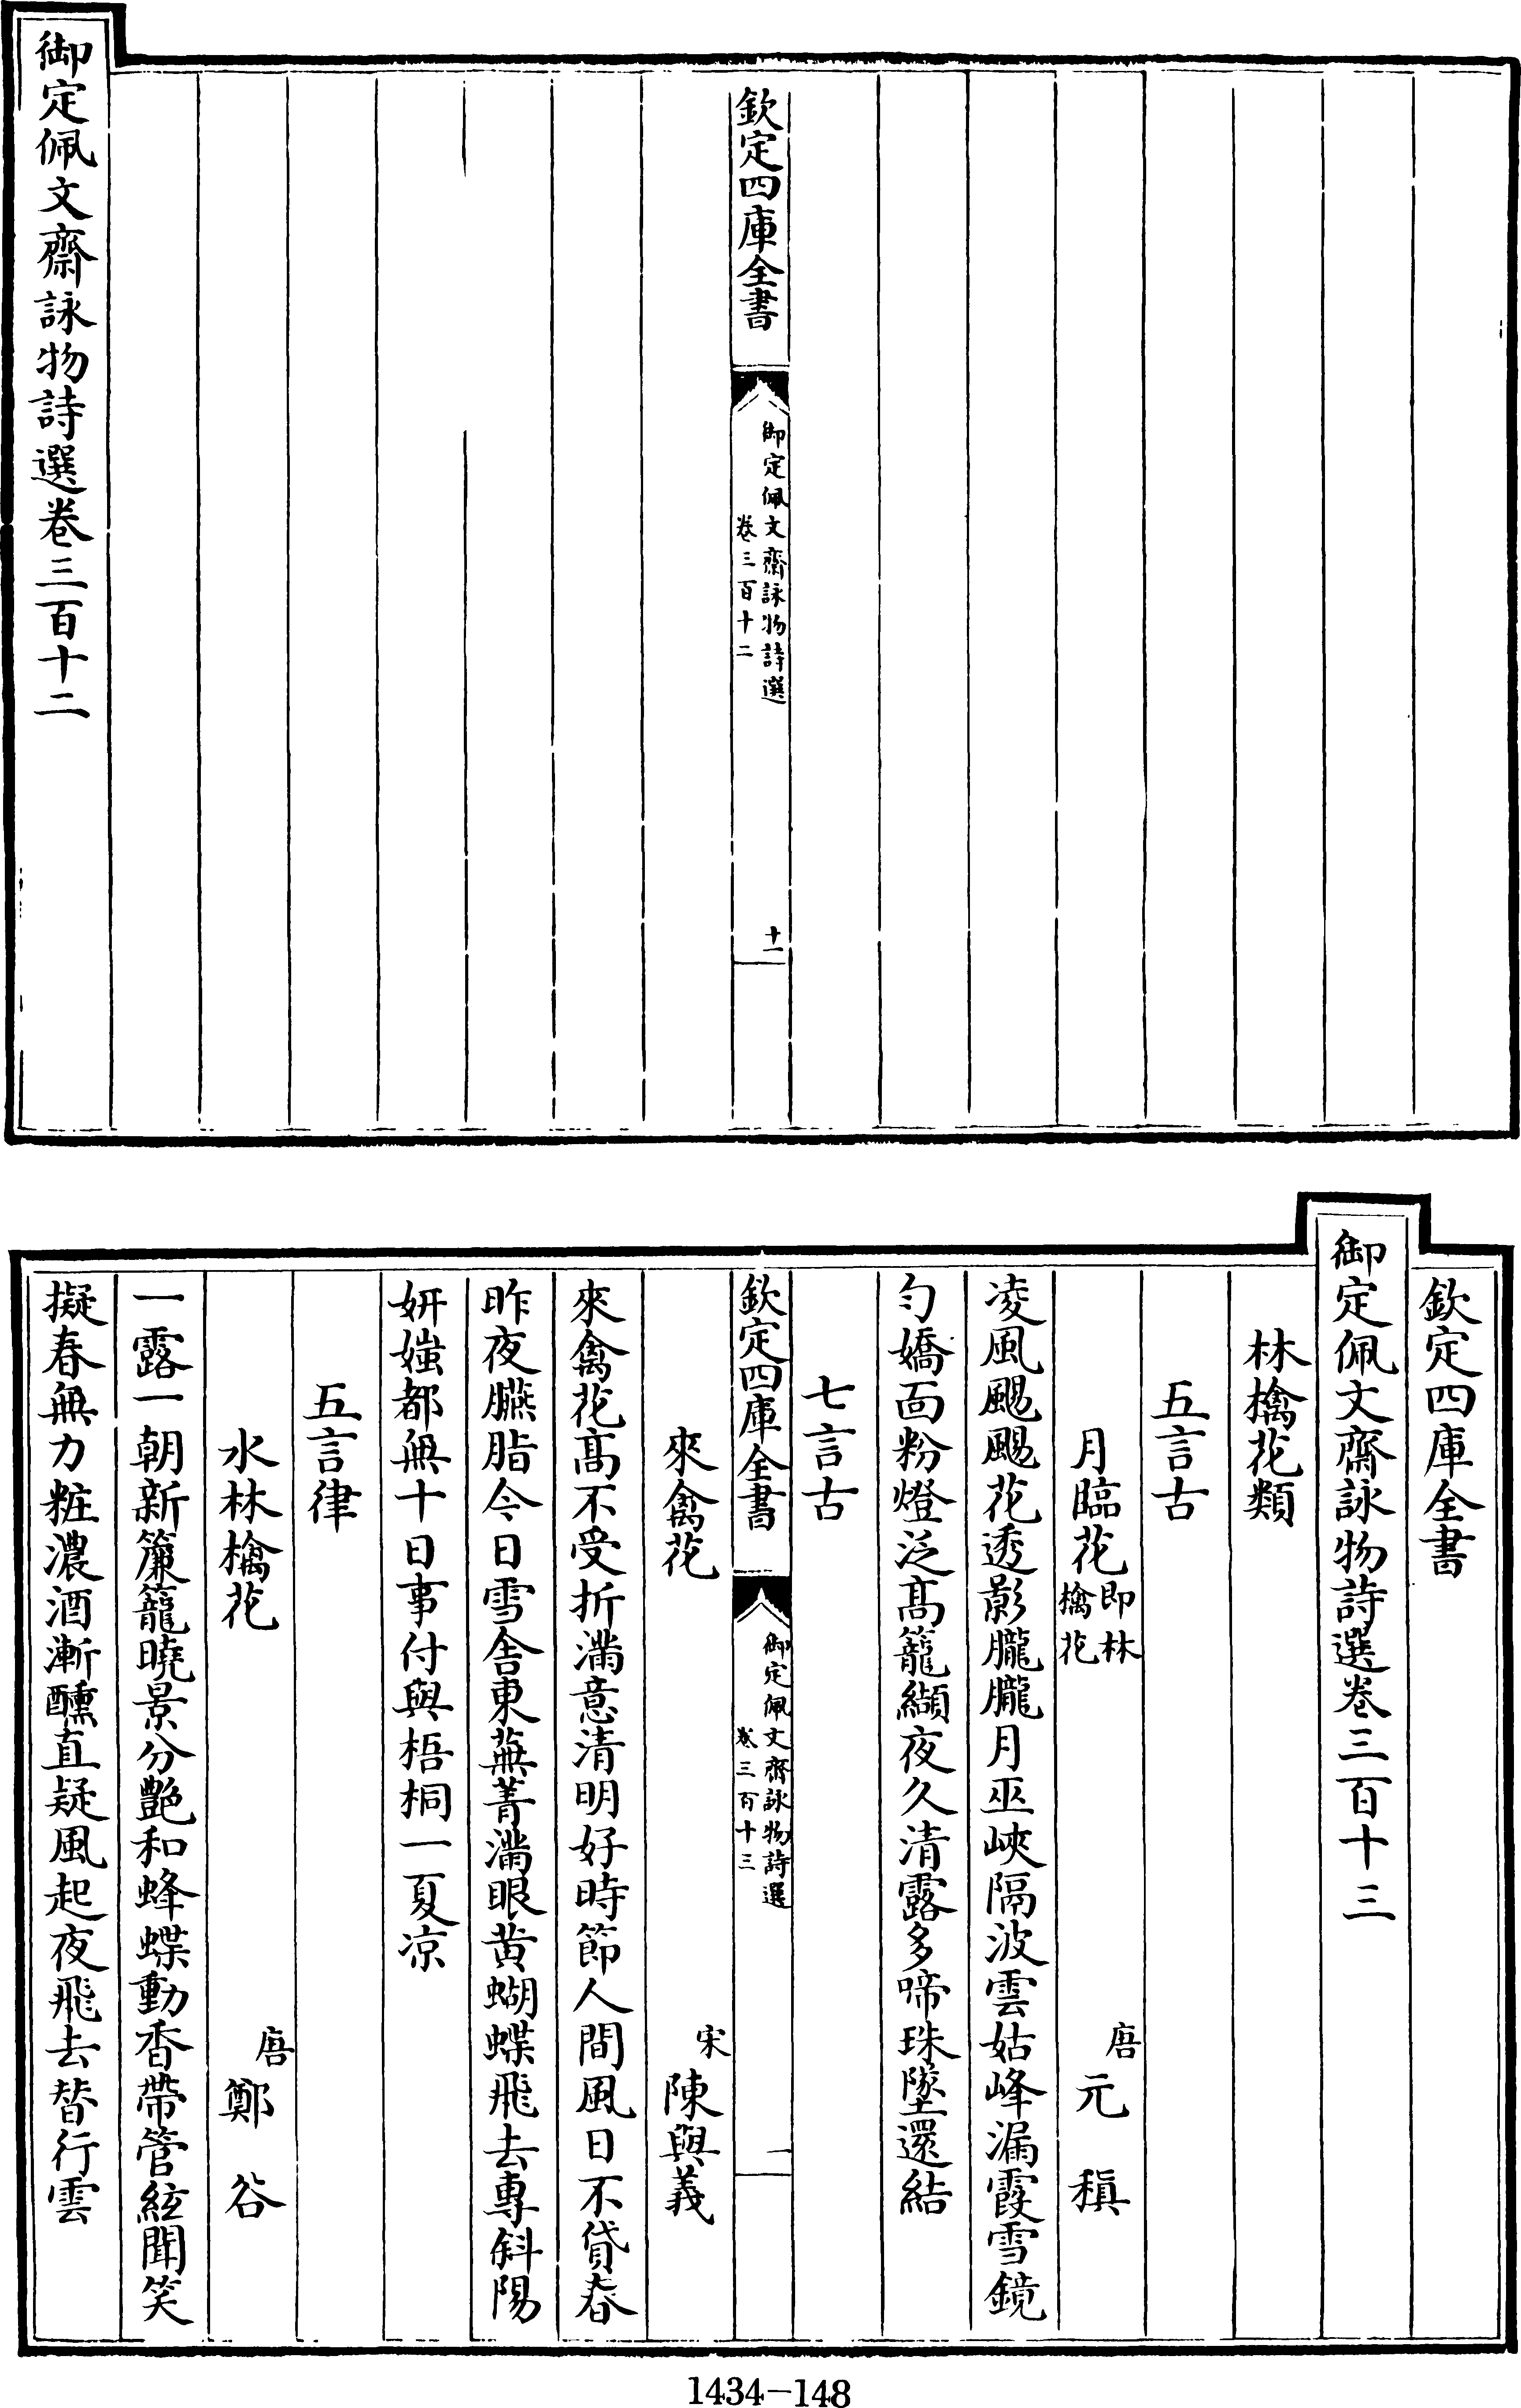 欽定四庫全書
御定佩文齋詠物詩選
卷三百十二
十一
御定佩文齋詠物詩選卷三百十二
欽定四庫全書
御定佩文齋詠物詩選卷三百十三
林檎花類
五言古
月臨花即林檎花 唐 元稹
凌風颺颺花透影朧朧月巫峽隔波雲姑峰漏霞雪鏡
勻嬌面粉燈泛髙籠纈夜久清露多啼珠墜還結
七言古
欽定四庫全書
御定佩文齋詠物詩選
卷三百十三
一
來禽花 宋 陳與義
來禽花髙不受折滿意清明好時節人間風日不貸春
昨夜臙脂今日雪舍東蕪菁滿眼黄蝴蝶飛去專斜陽
妍媸都無十日事付與梧桐一夏凉
五言律
水林檎花 唐 鄭谷
一露一朝新簾籠曉景分艶和蜂蝶動香帶管絃聞笑
擬春無力粧濃酒漸醺直疑風起夜飛去替行雲
1434-148